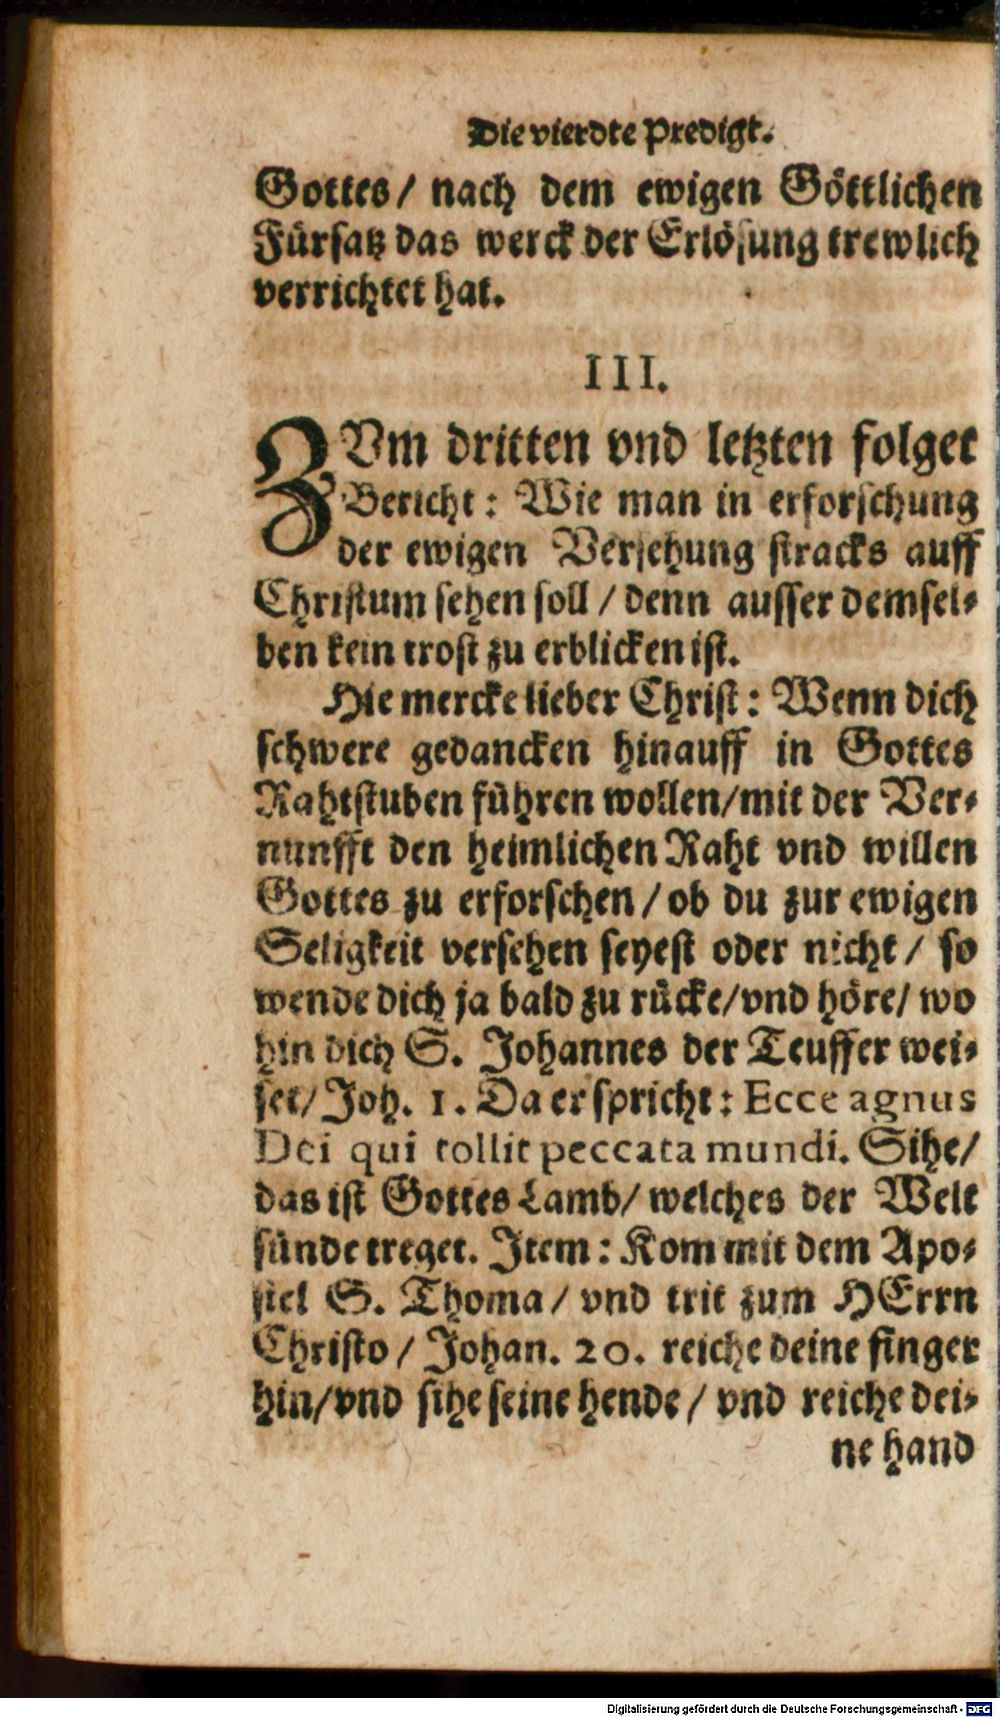 Die vierdte Predigt.
Gottes/ nach dem ewigen Göttlichen
Fürsatz das werck der Erlösung trewlich
verrichtet hat.
III.
ZVm dritten vnd letzten folget
Bericht: Wie man in erforschung
der ewigen Versehung stracks auff
Christum sehen soll/ denn ausser demsel-
ben kein trost zu erblicken ist.
Hie mercke lieber Christ: Wenn dich
schwere gedancken hinauff in Gottes
Rahtstuben führen wollen/mit der Ver-
nunfft den heimlichen Raht vnd willen
Gottes zu erforschen/ob du zur ewigen
Seligkeit versehen seyest oder nicht/ so
wende dich ja bald zu rücke/vnd höre/ wo
hin dich S. Johannes der Teuffer wei-
set/Joh. 1. Da er spricht: Ecce agnus
Dei qui tollit peccata mundi. Sihe/
das ist Gottes Lamb/ welches der Welt
sünde treget. Item: Kom mit dem Apo-
stel S. Thoma/ vnd trit zum HErrn
Christo/ Johan. 20. reiche deine finger
hin/vnd sihe seine hende/ vnd reiche dei-
ne hand
Digitalisierung gefördert durch die Deutsche Forschungsgemeinschaft - DFG